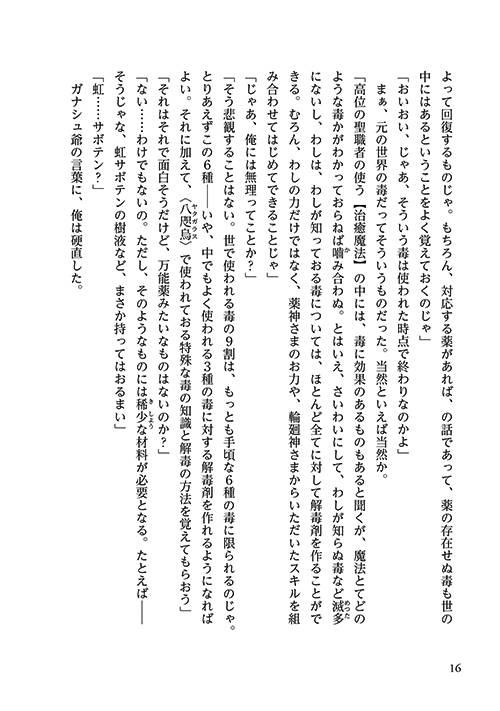 よって回復するものじゃ。もちろん、対応する薬があれば、の話であって、薬の存在せぬ毒も世の
中にはあるということをよく覚えておくのじゃ」
「おいおい、じゃあ、そういう毒は使われた時点で終わりなのかよ」
まぁ、元の世界の毒だってそういうものだった。当然といえば当然か。
「高位の聖職者の使う【治癒魔法】の中には、毒に効果のあるものもあると聞くが、魔法とてどの
ような毒かがわかっておらねば嚙み合わぬ。とはいえ、さいわいにして、わしが知らぬ毒など滅多
にないし、わしは、わしが知っておる毒については、ほとんど全てに対して解毒剤を作ることがで
きる。むろん、わしの力だけではなく、薬神さまのお力や、輪廻神さまからいただいたスキルを組
み合わせてはじめてできることじゃ」
「じゃあ、俺には無理ってことか？」
「そう悲観することはない。世で使われる毒の９割は、もっとも手頃な６種の毒に限られるのじゃ。
とりあえずこの６種――いや、中でもよく使われる３種の毒に対する解毒剤を作れるようになれば
よい。それに加えて、〈八咫烏〉で使われておる特殊な毒の知識と解毒の方法を覚えてもらおう」
「それはそれで面白そうだけど、万能薬みたいなものはないのか？」
「ない……わけでもないの。ただし、そのようなものには稀少な材料が必要となる。たとえば――
そうじゃな、虹サボテンの樹液など、まさか持ってはおるまい」
「虹……サボテン？」
ガナシュ爺の言葉に、俺は硬直した。
16